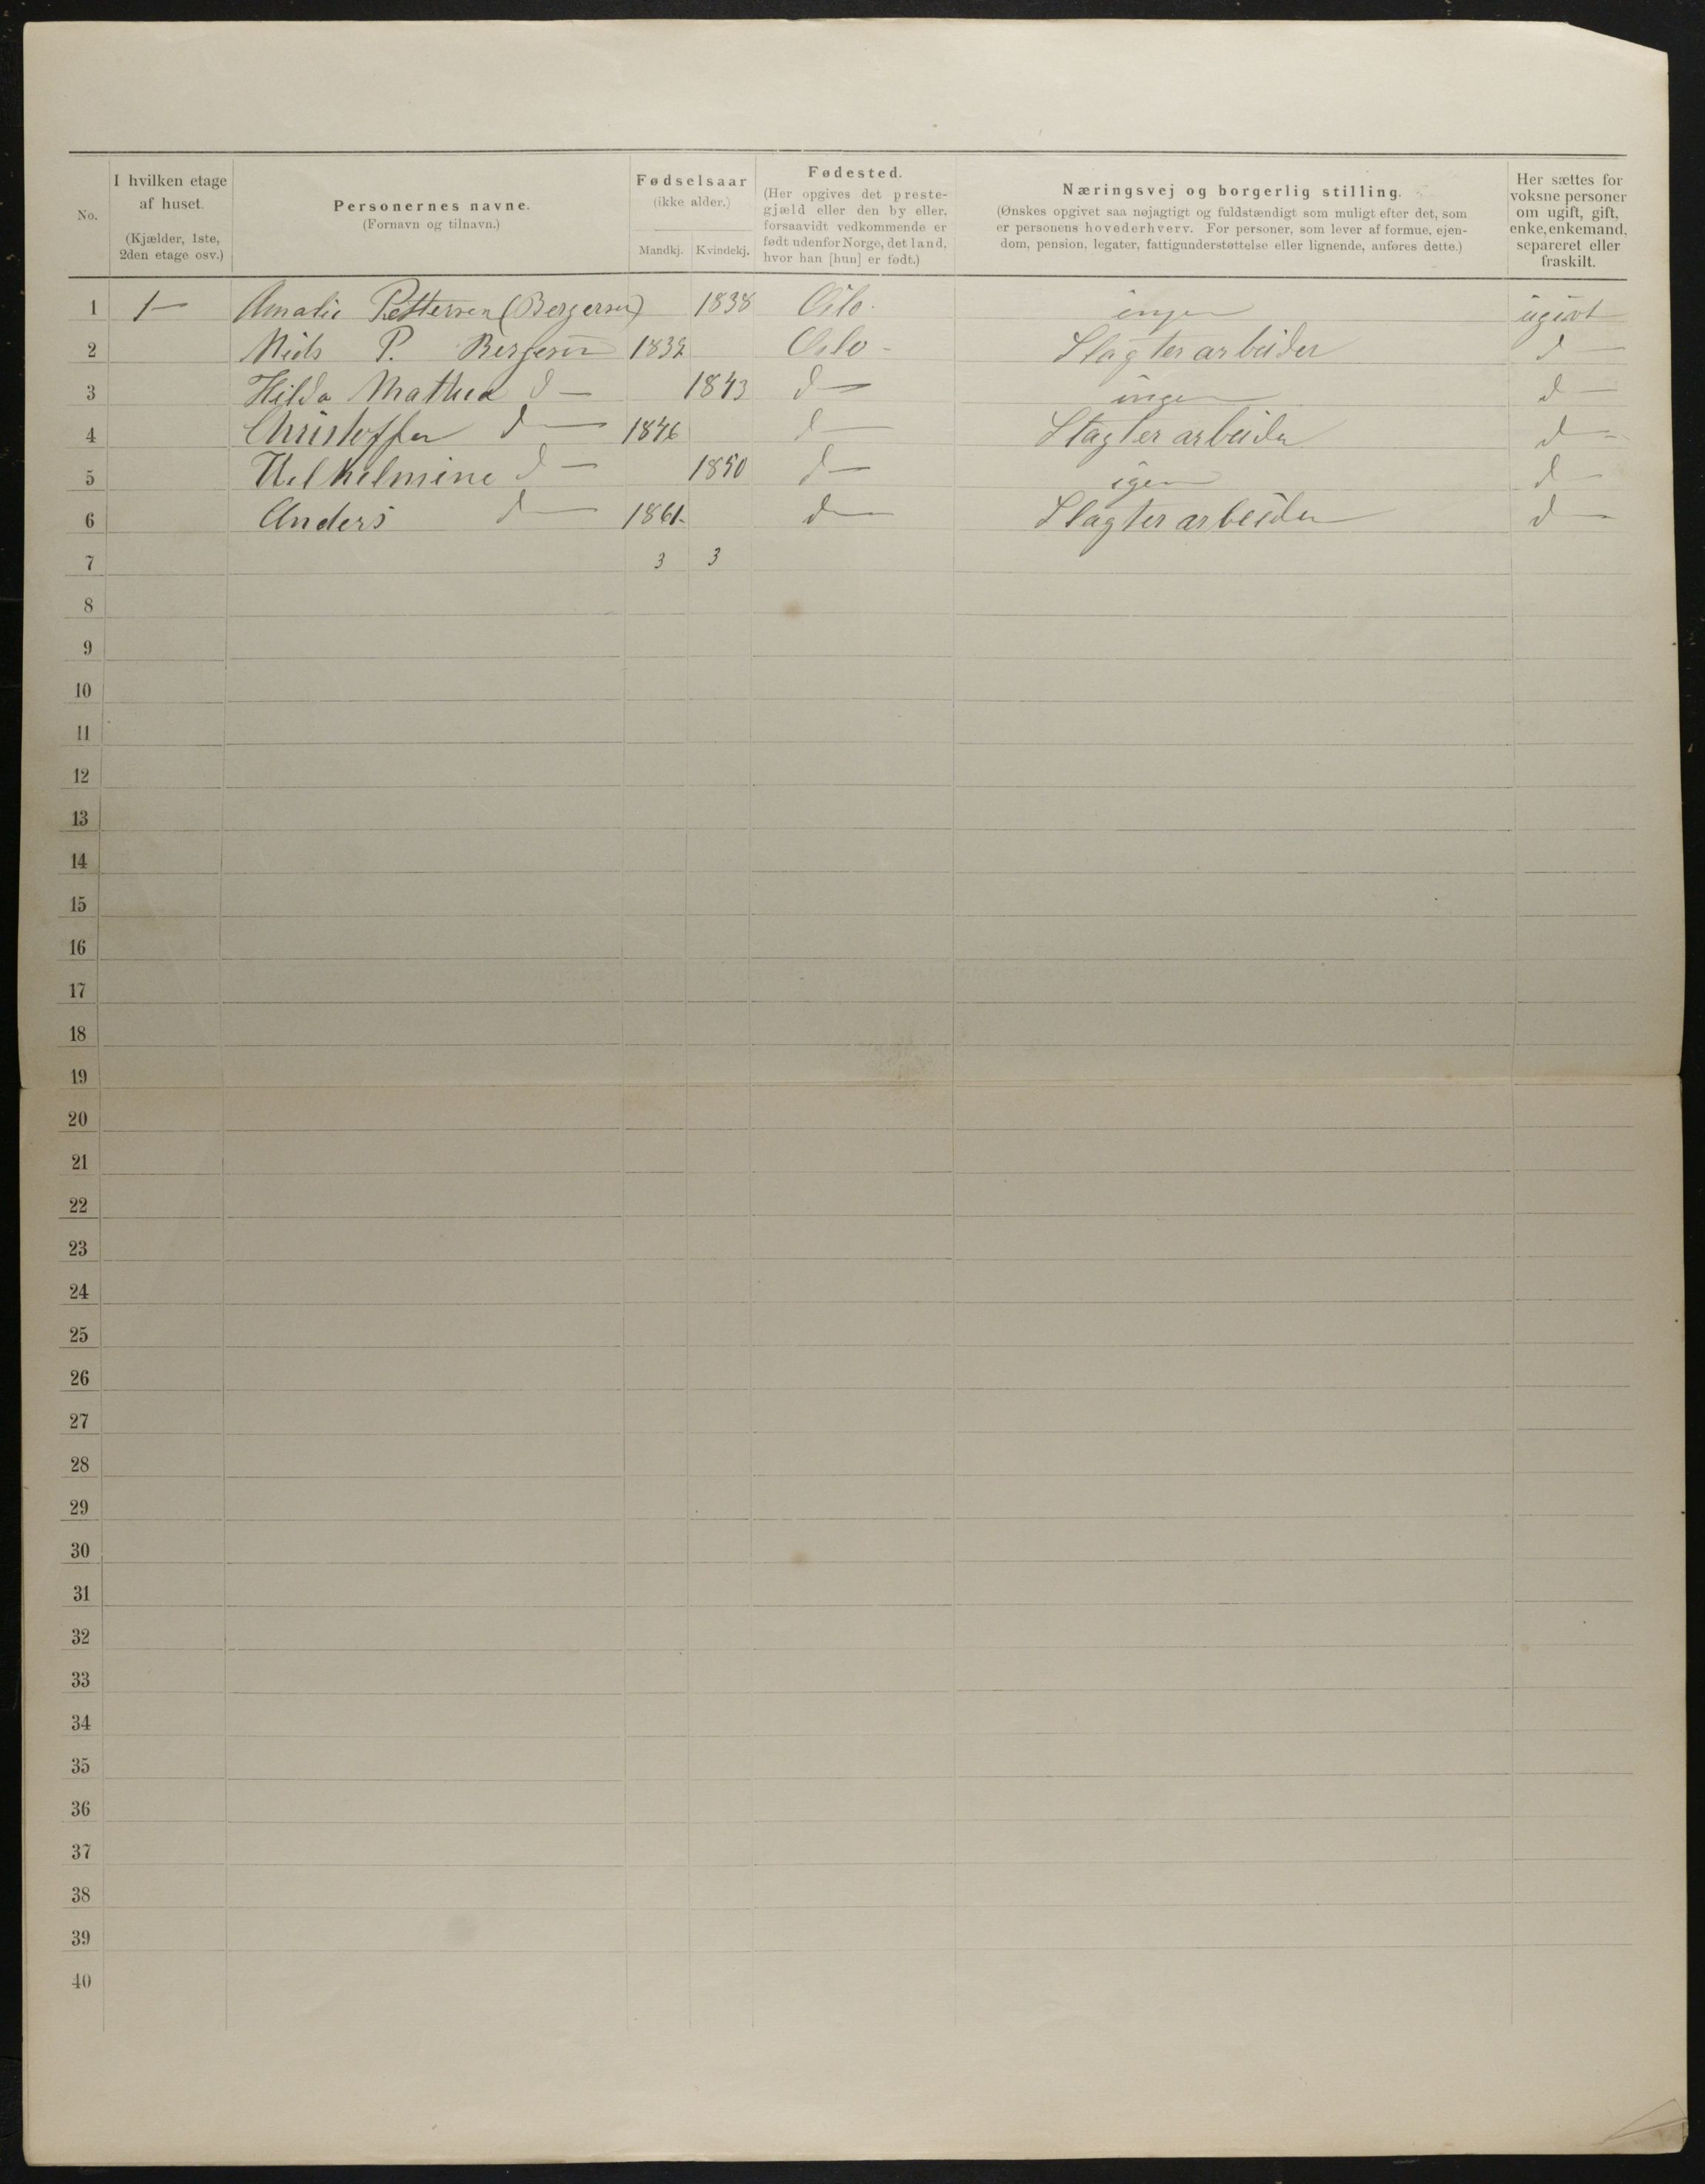 No.
I hvilken etage
af huset.
(Kjælder, 1ste,
2den etage osv.)
Personernes navne.
(Fornavn og tilnavn.)
Fødselsaar
(ikke alder.)
Mandkj. Kvindekj.
Fødested.
(Her opgives det preste-
gjæld eller den by eller,
forsaavidt vedkommende er
født udenfor Norge, det land,
hvor han [hun] er født.)
Næringsvej og borgerlig stilling.
(Ønskes opgivet saa nøjagtigt og fuldstændigt som muligt efter det, som
er personens hovederhverv. For personer, som lever af formue, ejen-
dom, pension, legater, fattigunderstøttelse eller lignende, anføres dette.)
Her sættes for
voksne personer
om ugift, gift,
enke, enkemand,
separeret eller
fraskilt.
1 1 — Amalie Pettersen (Bergersen) 1838 Oslo. ingen ugivt
2 Niels P. Bergersen 1832 Oslo - Slagterarbeider d —
3 Hilda Mathea d — 1843 d — ingen d —
4 Christoffer d — 1846 d — Slagterarbeider d —
5 Vilhelmine d — 1850 d — igen d —
6 Anders d — 1861. d — Slagterarbeider d —
7 3 3
8
9
10
11
12
13
14
15
16
17
18
19
20
21
22
23
24
25
26
27
28
29
30
31
32
33
34
35
36
37
38
39
40